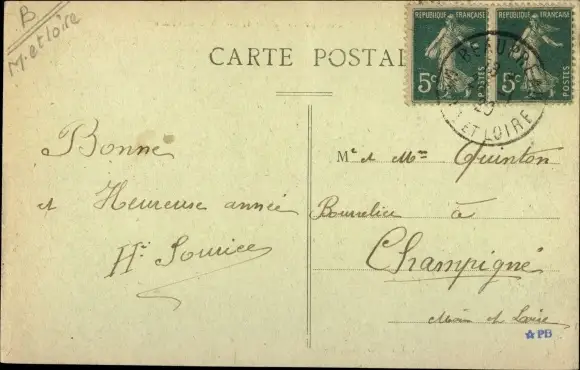 B
M. et Loire
CARTE POSTA
REPUBLIQUE FRANÇAISE
REPUBLIQUE FRANÇAISE
5c
POSTES
5c
POSTES
ET LOIRE
Bonne
et Heureuse année
Hri Sourice
Mr et Mme Quinton
Bourrelier à
Champigné
Maine et Loire
PB